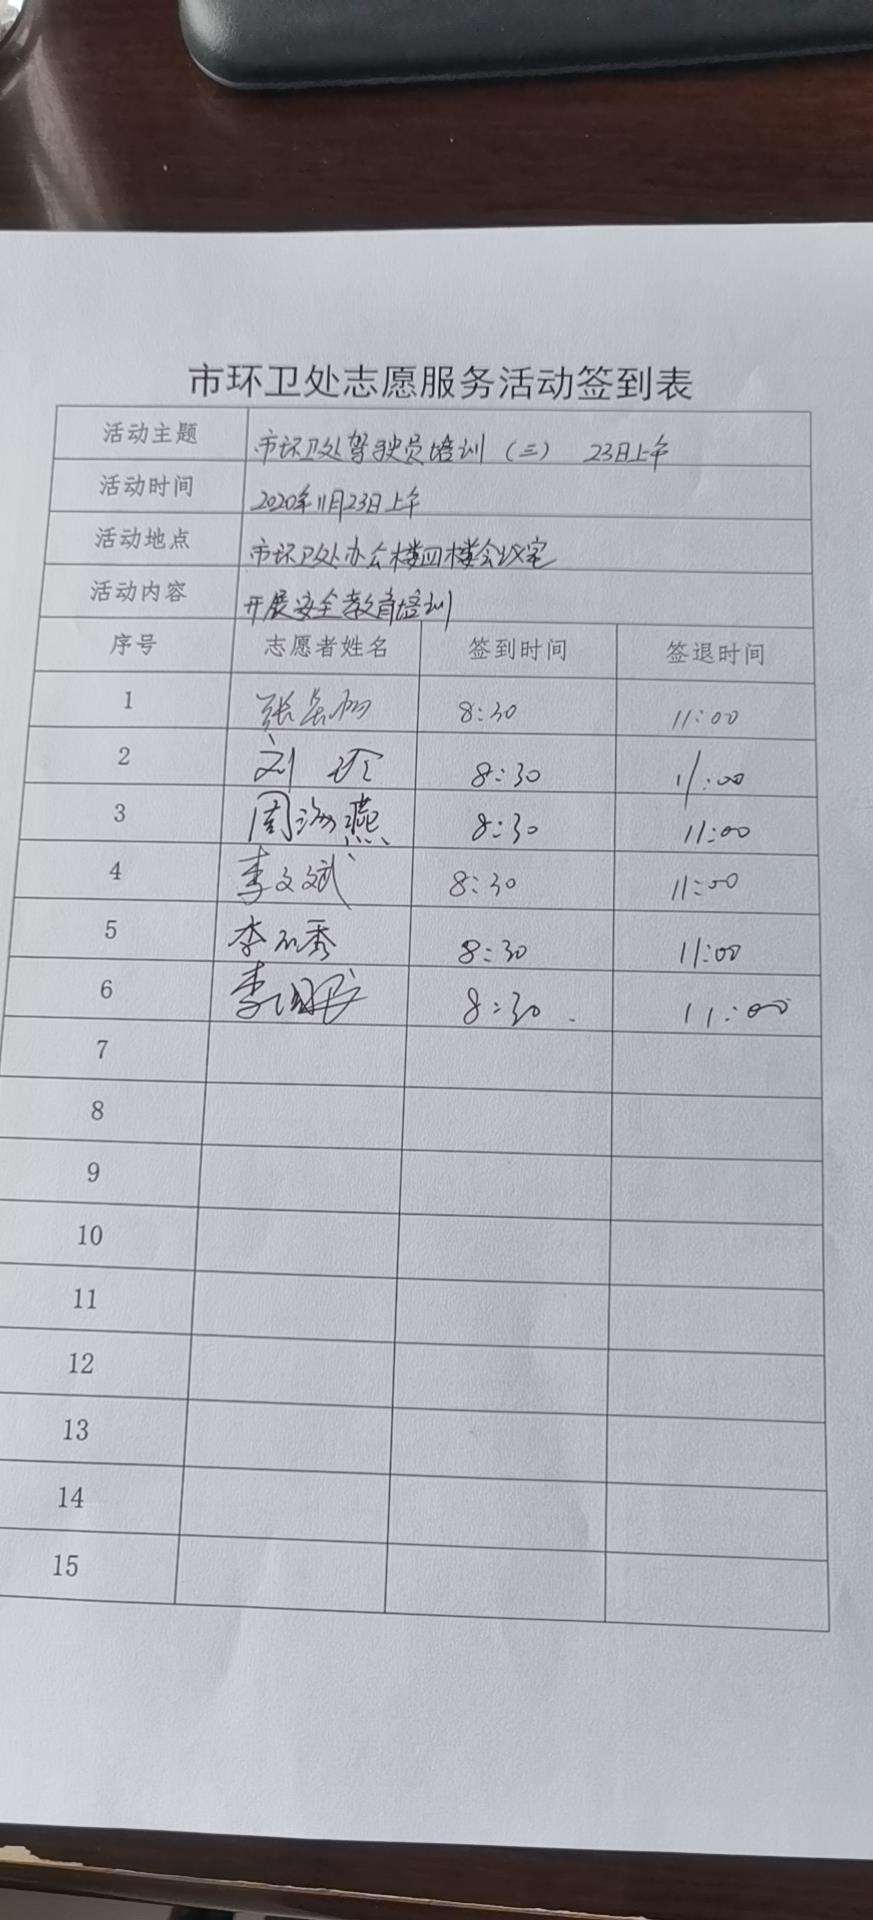 市环卫处志愿服务活动签到表
活动主题 市环卫处驾驶员培训（三） 23日上午
活动时间 2020年11月23日上午
活动地点 市环卫处办公楼四楼会议室
活动内容 开展安全教育培训
序号 志愿者姓名 签到时间 签退时间
1 张 8:30 11:00
2 刘玲 8:30 11:00
3 周海燕 8:30 11:00
4 李文斌 8:30 11:00
5 李 秀 8:30 11:00
6 李 8:30 11:00
7
8
9
10
11
12
13
14
15